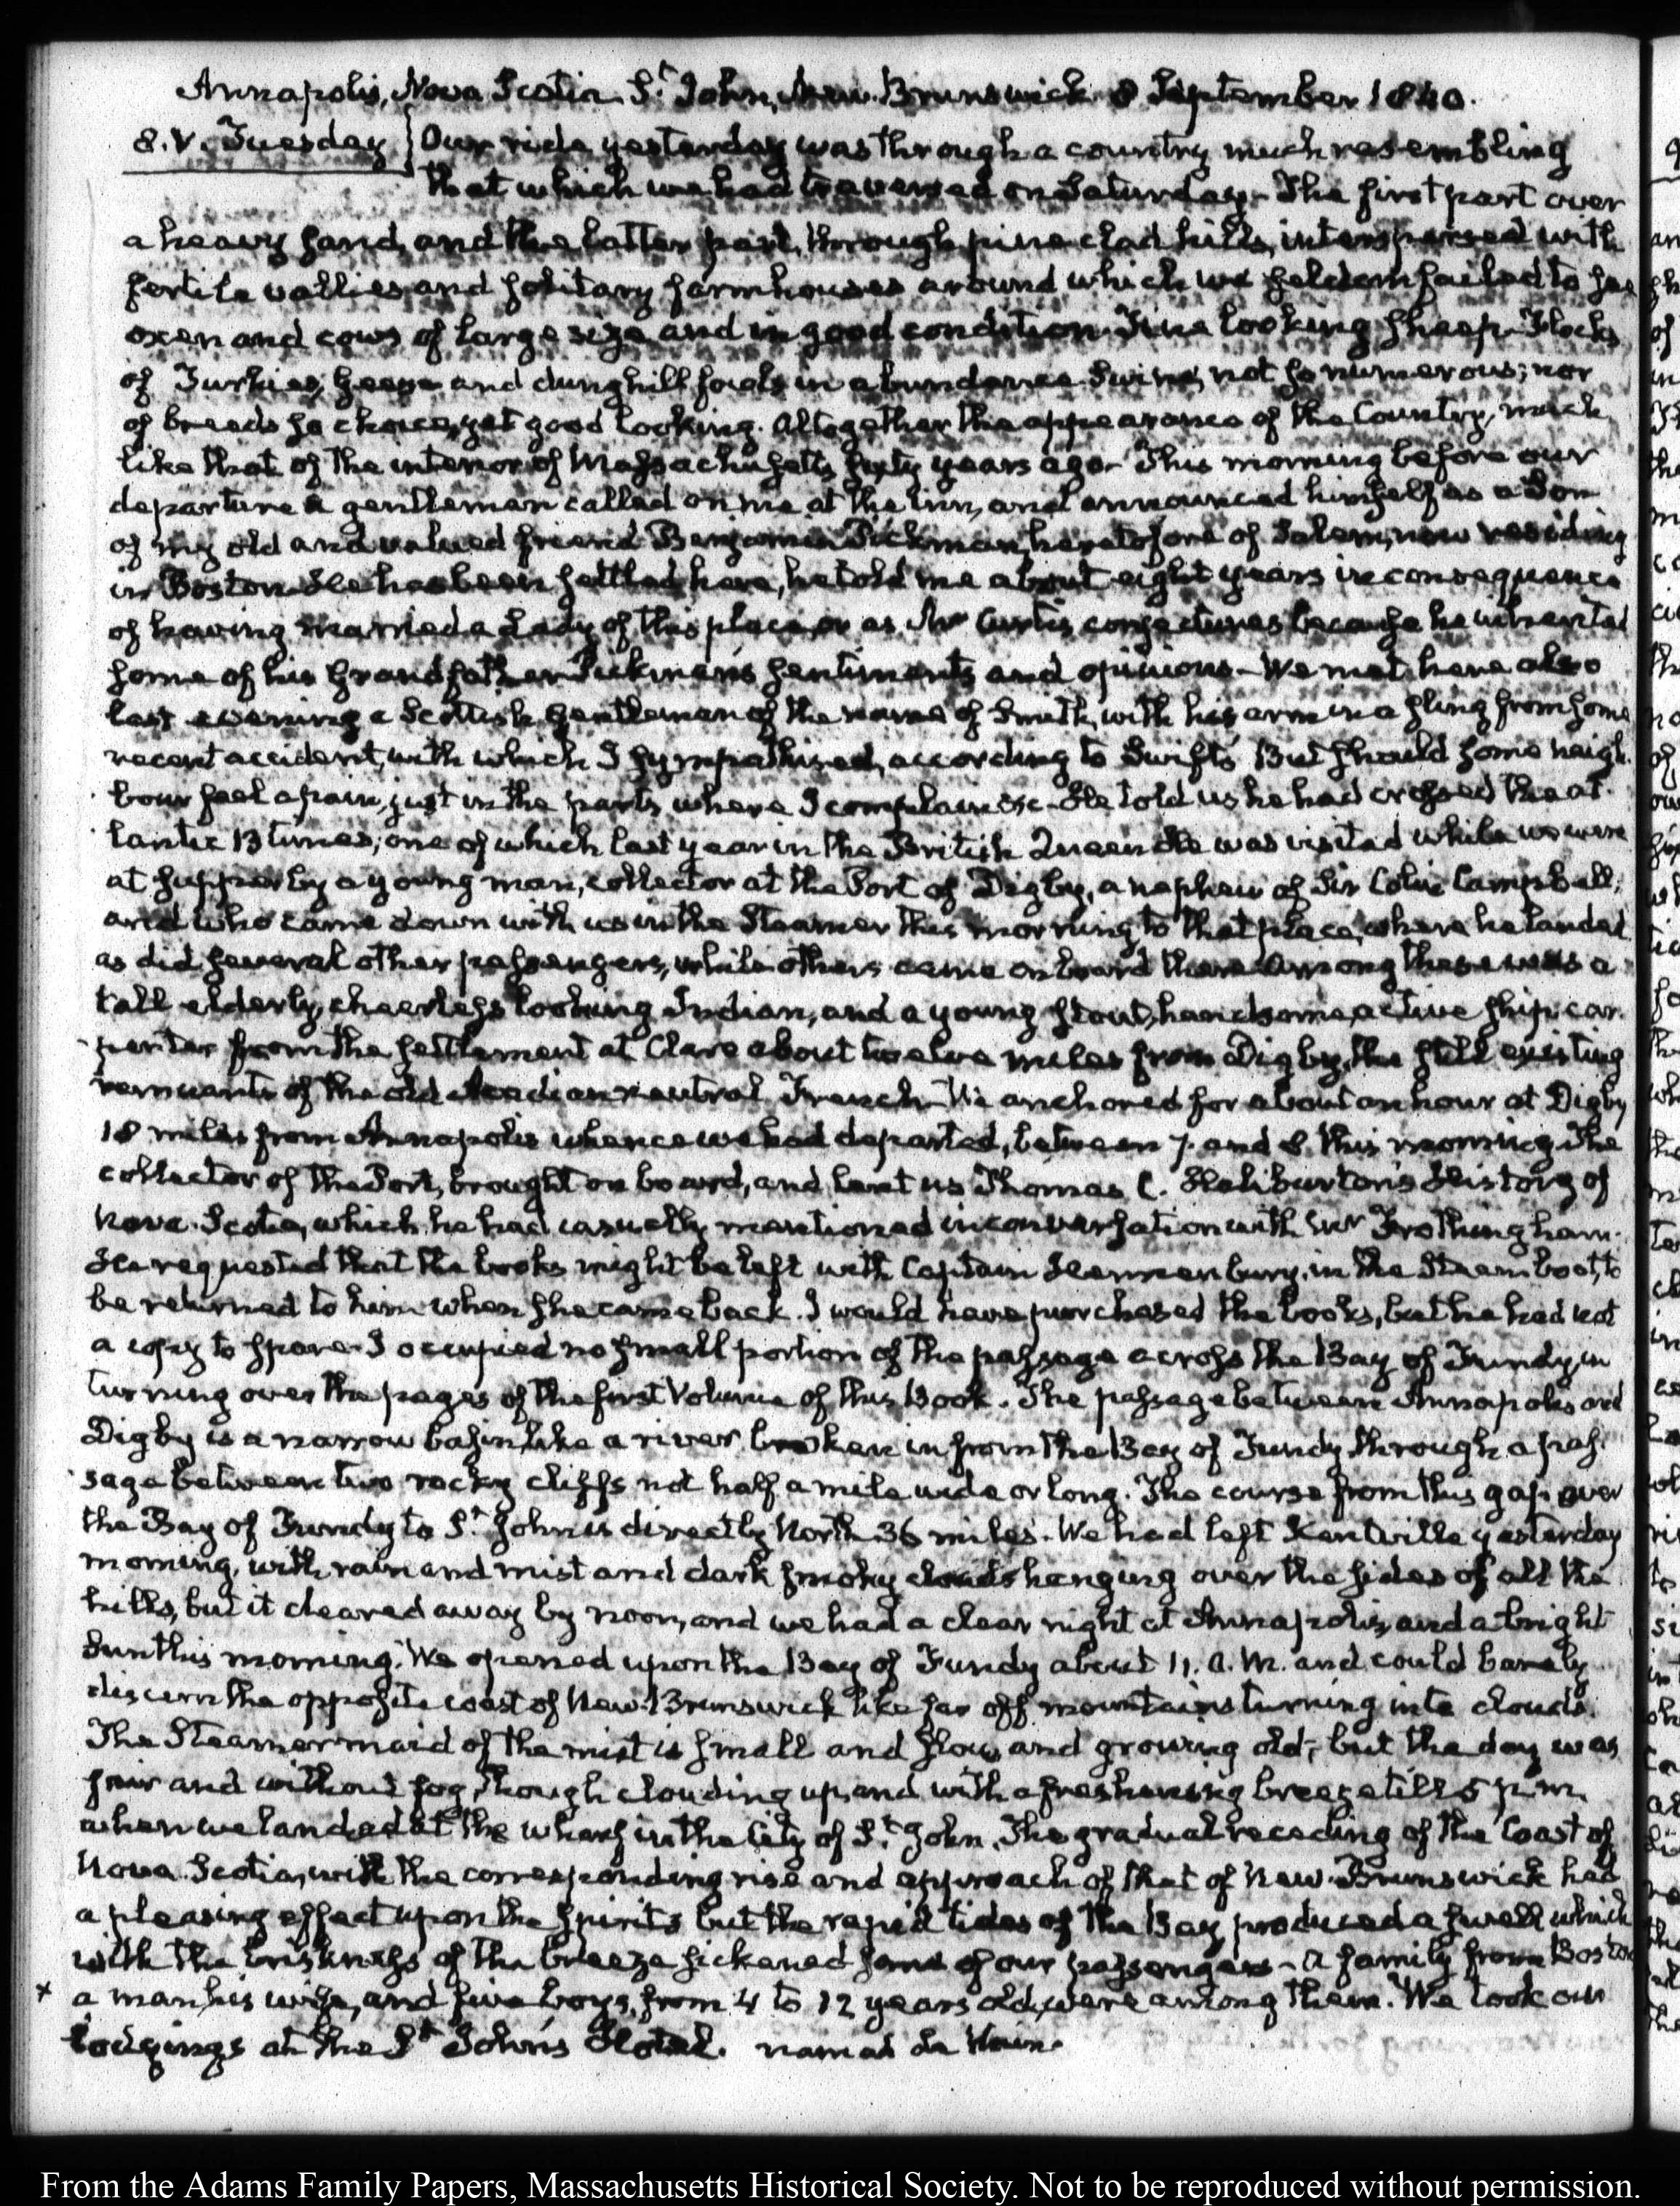 Annapolis, Nova Scotia. St. John, New-Brunswick 8 September 1840.
8. V. Tuesday } Our ride yesterday was through a country much resembling
that which we had traversed on Saturday - The first part over
a heavy sand, and the latter part, through pine clad hills, interspersed with
fertile vallies and solitary farmhouses around which we seldom failed to see
oxen and cows of large size and in good condition. Fine looking sheep - Flocks
of Turkies, geese and dunghill fowls in abundance. Swine, not so numerous; nor
of breeds so choice, yet good looking. Altogether the appearance of the Country, much
like that of the interior of Massachusetts sixty years ago - This morning before our
departure a gentleman called on me at the Inn, and announced himself as a Son
of my old and valued friend Benjamin Pickman, heretofore of Salem, now residing
in Boston. He has been settled here, he told me about eight years in consequence
of having married a Lady of this place, or as Mr Curtis conjectures because he inherited
some of his Grandfather Pickman's sentiments and opinions - We met here also
last evening a Scottish Gentleman of the name of Smith, with his arm in a sling from some
recent accident, with which I sympathised, according to Swift's But should some neigh-
bour feel a pain, just in the parts where I complain &c - He told us he had crossed the at-
lantic 13 times, one of which last year in the British Queen. He was visited while we were
at supper by a young man, collector at the Port of Digby, a nephew of Sir Colin Campbell,
and who came down with us in the Steamer this morning to that place, where he landed
as did several other passengers, while others came on board there. Among these was a
tall elderly, cheerless looking Indian, and a young stout, handsome, active ship-car-
penter from the settlement at Clare about twelve miles from Digby, the still existing
remnants of the old Acadian neutral French. We anchored for about an hour at Digby
18 miles from Annapolis whence we had departed, between 7. and 8. this morning. The
collector of the Port, brought on board, and lent us Thomas C. Haliburton's History of
Nova-Scotia, which he had casually mentioned in conversation with Mr Frothingham.
He requested that the books might be left with Captain in the Steam boat, to
be returned to him when she came back. I would have purchased the books, but he had not
a copy to spare. I occupied no small portion of the passage across the Bay of Fundy in
turning over the pages of the first Volume of this Book. The passage between Annapolis and
Digby is a narrow basin, like a river broken in from the Bay of Fundy, through a pas-
sage between two rocky cliffs not half a mile wide or long. The course from this gap over
the Bay of Fundy to St. John is directly North 36 miles. We had left Kentville yesterday
morning, with rain and mist and dark smoky clouds hanging over the sides of all the
hills, but it cleared away by noon, and we had a clear night at Annapolis, and a bright
Sun this morning. We opened upon the Bay of Fundy about 11. A.M. and could barely
discern the opposite coast of New-Brunswick like far off mountains turning into clouds.
The Steamer maid of the mist is small and slow, and growing old; but the day was
fair and without fog, though clouding up, and with a freshening breeze till 5 p.m.
when we landed at the wharf in the City of St. John. The gradual receding of the Coast of
Nova-Scotia, with the corresponding rise and approach of that of New-Brunswick had
a pleasing effect upon the spirits but the rapid tides of the Bay, produced a swell which
with the briskness of the breeze sickened some of our passengers - A family from Boston
x a man, his wife, and five boys, from 4 to 12 years old, were among them. We took our
lodgings at the St John's Hotel. named
From the Adams Family Papers, Massachusetts Historical Society. Not to be reproduced without permission.